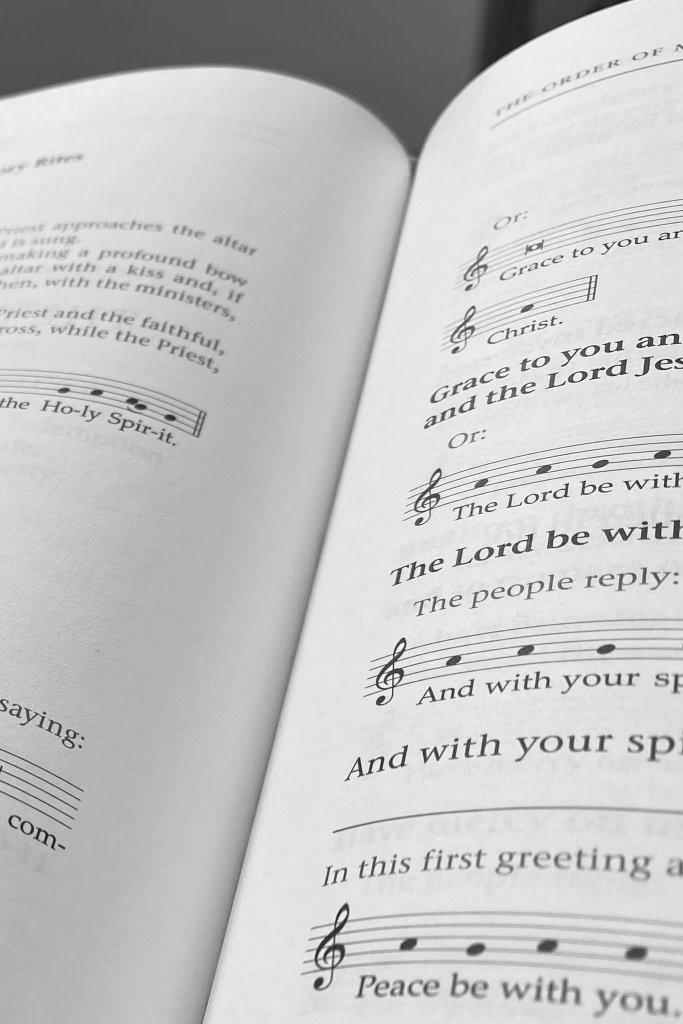 ory Rites
Priest approaches the altar
t is sung.
making a profound bow
altar with a kiss and, if
hen, with the ministers,
Priest and the faithful,
ross, while the Priest,
the Ho-ly Spir-it.
saying:
com-
THE ORDER OF M
Or:
Grace to you an
Christ.
Grace to you an
and the Lord Jes
Or:
The Lord be with
The Lord be with
The people reply:
And with your sp
And with your spi
In this first greeting a
Peace be with you.